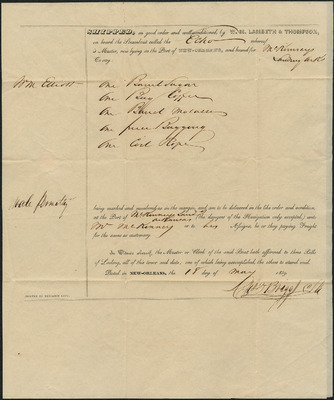 SHIPPED, in good order and well conditioned, by LAMBETH & THOMPSON,
on board the Steamboat called the Echo whereof
is Master, now lying in the Port of NEW-ORLEANS, and bound for McKinneys
Landing Arks
To say
Wm Elliott One Barrel Sugar
One Bag Coffee
One Barrel Molasses
One piece Bagging
One Coil Rope
being marked and numbered as in the margin, and are to be delivered in the like order and condition,
at the Port of McKinneys Land Arkansas (the dangers of the Navigation only excepted,) unto
Mr McKinney or to his Assigns, he or they paying Freight
for the same as customary
In Witness whereof, the Master or Clerk of the said Boat hath affirmed to three Bills
of Lading, all of this tenor and date: one of which being accomplished, the others to stand void.
Dated in NEW-ORLEANS, the 18 day of May 1839